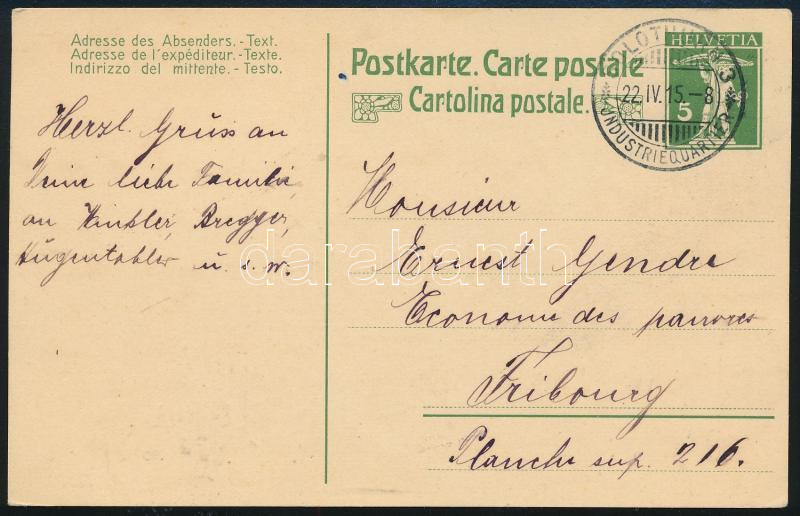 Adresse des Absenders.-Text.
Adresse de l'expéditeur.-Texte.
Indirizzo del mittente.-Testo.
Postkarte. Carte postale
Cartolina postale.
HELVETIA
5
SOLOTHURN 3
22.IV.15.-8
INDUSTRIEQUARTIER
Herzl. Gruss an
Deine liebe Familie,
an Winkler, Bregger,
Hugentobler u. s. w.
Monsieur
Ernest Gendre
Econome des pauvres
Fribourg
Planche sup. 216.
darabanth